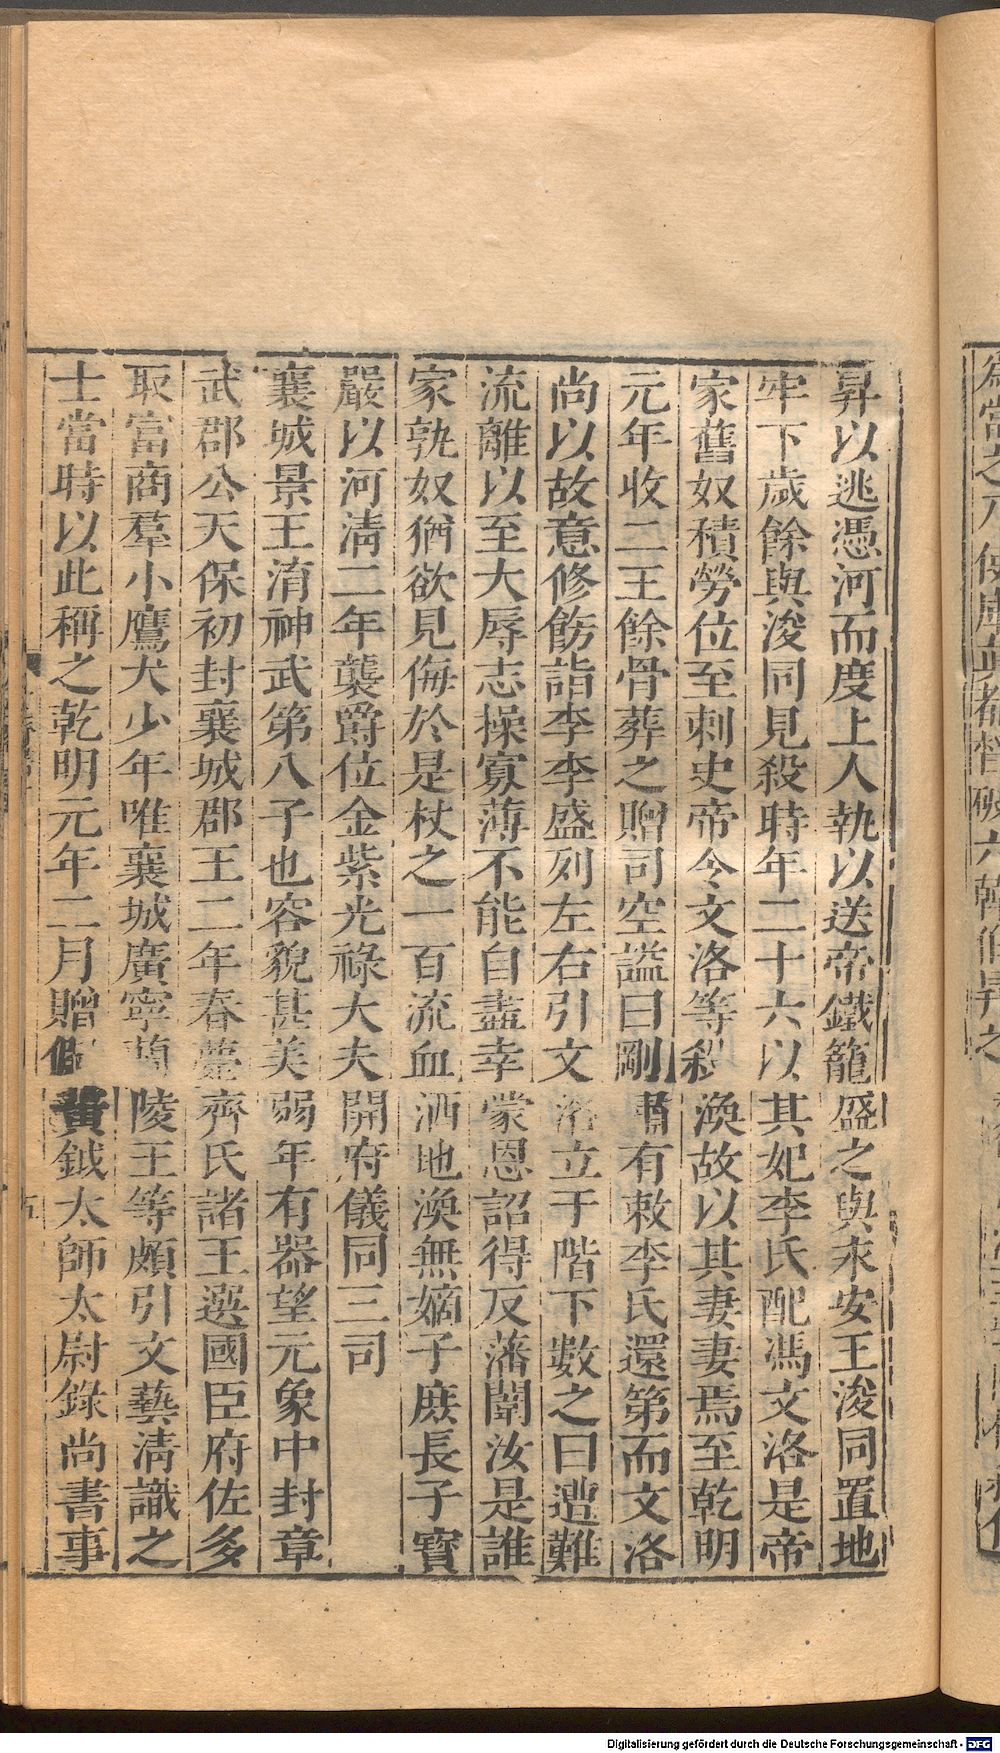 昇以逃憑河而度上人執以送帝鐵籠盛之與永安王浚同置地
牢下歲餘與浚同見殺時年二十六以其妃李氏配馮文洛是帝
家舊奴積勞位至刺史帝令文洛等殺渙故以其妻妻焉至乾明
元年收二王餘骨葬之贈司空謚曰剛肅有敕李氏還第而文洛
尚以故意修飭詣李李盛列左右引文洛立于階下數之曰遭難
流離以至大辱志操寡薄不能自盡幸蒙恩詔得反藩闈汝是誰
家孰奴猶欲見侮於是杖之一百流血洒地渙無嫡子庶長子寶
嚴以河清二年襲爵位金紫光祿大夫開府儀同三司
襄城景王淯神武第八子也容貌甚美弱年有器望元象中封章
武郡公天保初封襄城郡王二年春薨齊氏諸王選國臣府佐多
取富商羣小鷹犬少年唯襄城廣寧蘭陵王等頗引文藝清識之
士當時以此稱之乾明元年二月贈假黃鉞太師太尉錄尚書事
Digitalisierung gefördert durch die Deutsche Forschungsgemeinschaft - DFG